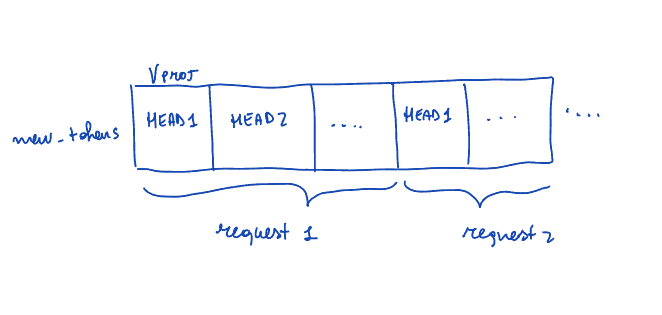 Vproj
new_tokens HEAD1 HEAD2 .... HEAD1 ... ....
request 1 request 2